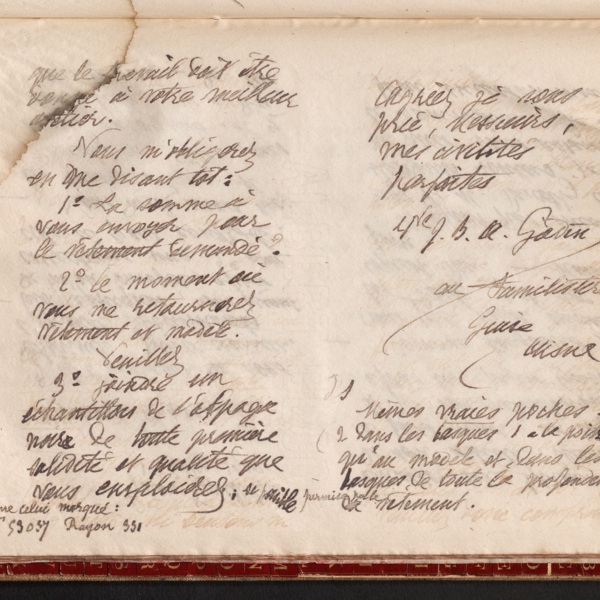 que le travail doit être
donné à votre meilleur
atelier.
Vous m'obligerez
en me disant tot:
1º La somme à
vous envoyer pour
le vetement demandé?
2º le moment où
vous me retournerez
vetement et modèle.
Veuillez
3º joindre un
échantillon de l'alpaga
noire de toute première
solidité et qualité que
vous emploierez;
celui marqué:
53037 Rayon 331
Agréez je vous
prie, Messieurs,
mes civilités
parfaites
J. B. A. Godin
au Familistère
Guise
Aisne
Mêmes vraies poches
2 dans les basques 1 à la poi
qu'au modèle et dans les
basques de toute la profonde
du vetement.